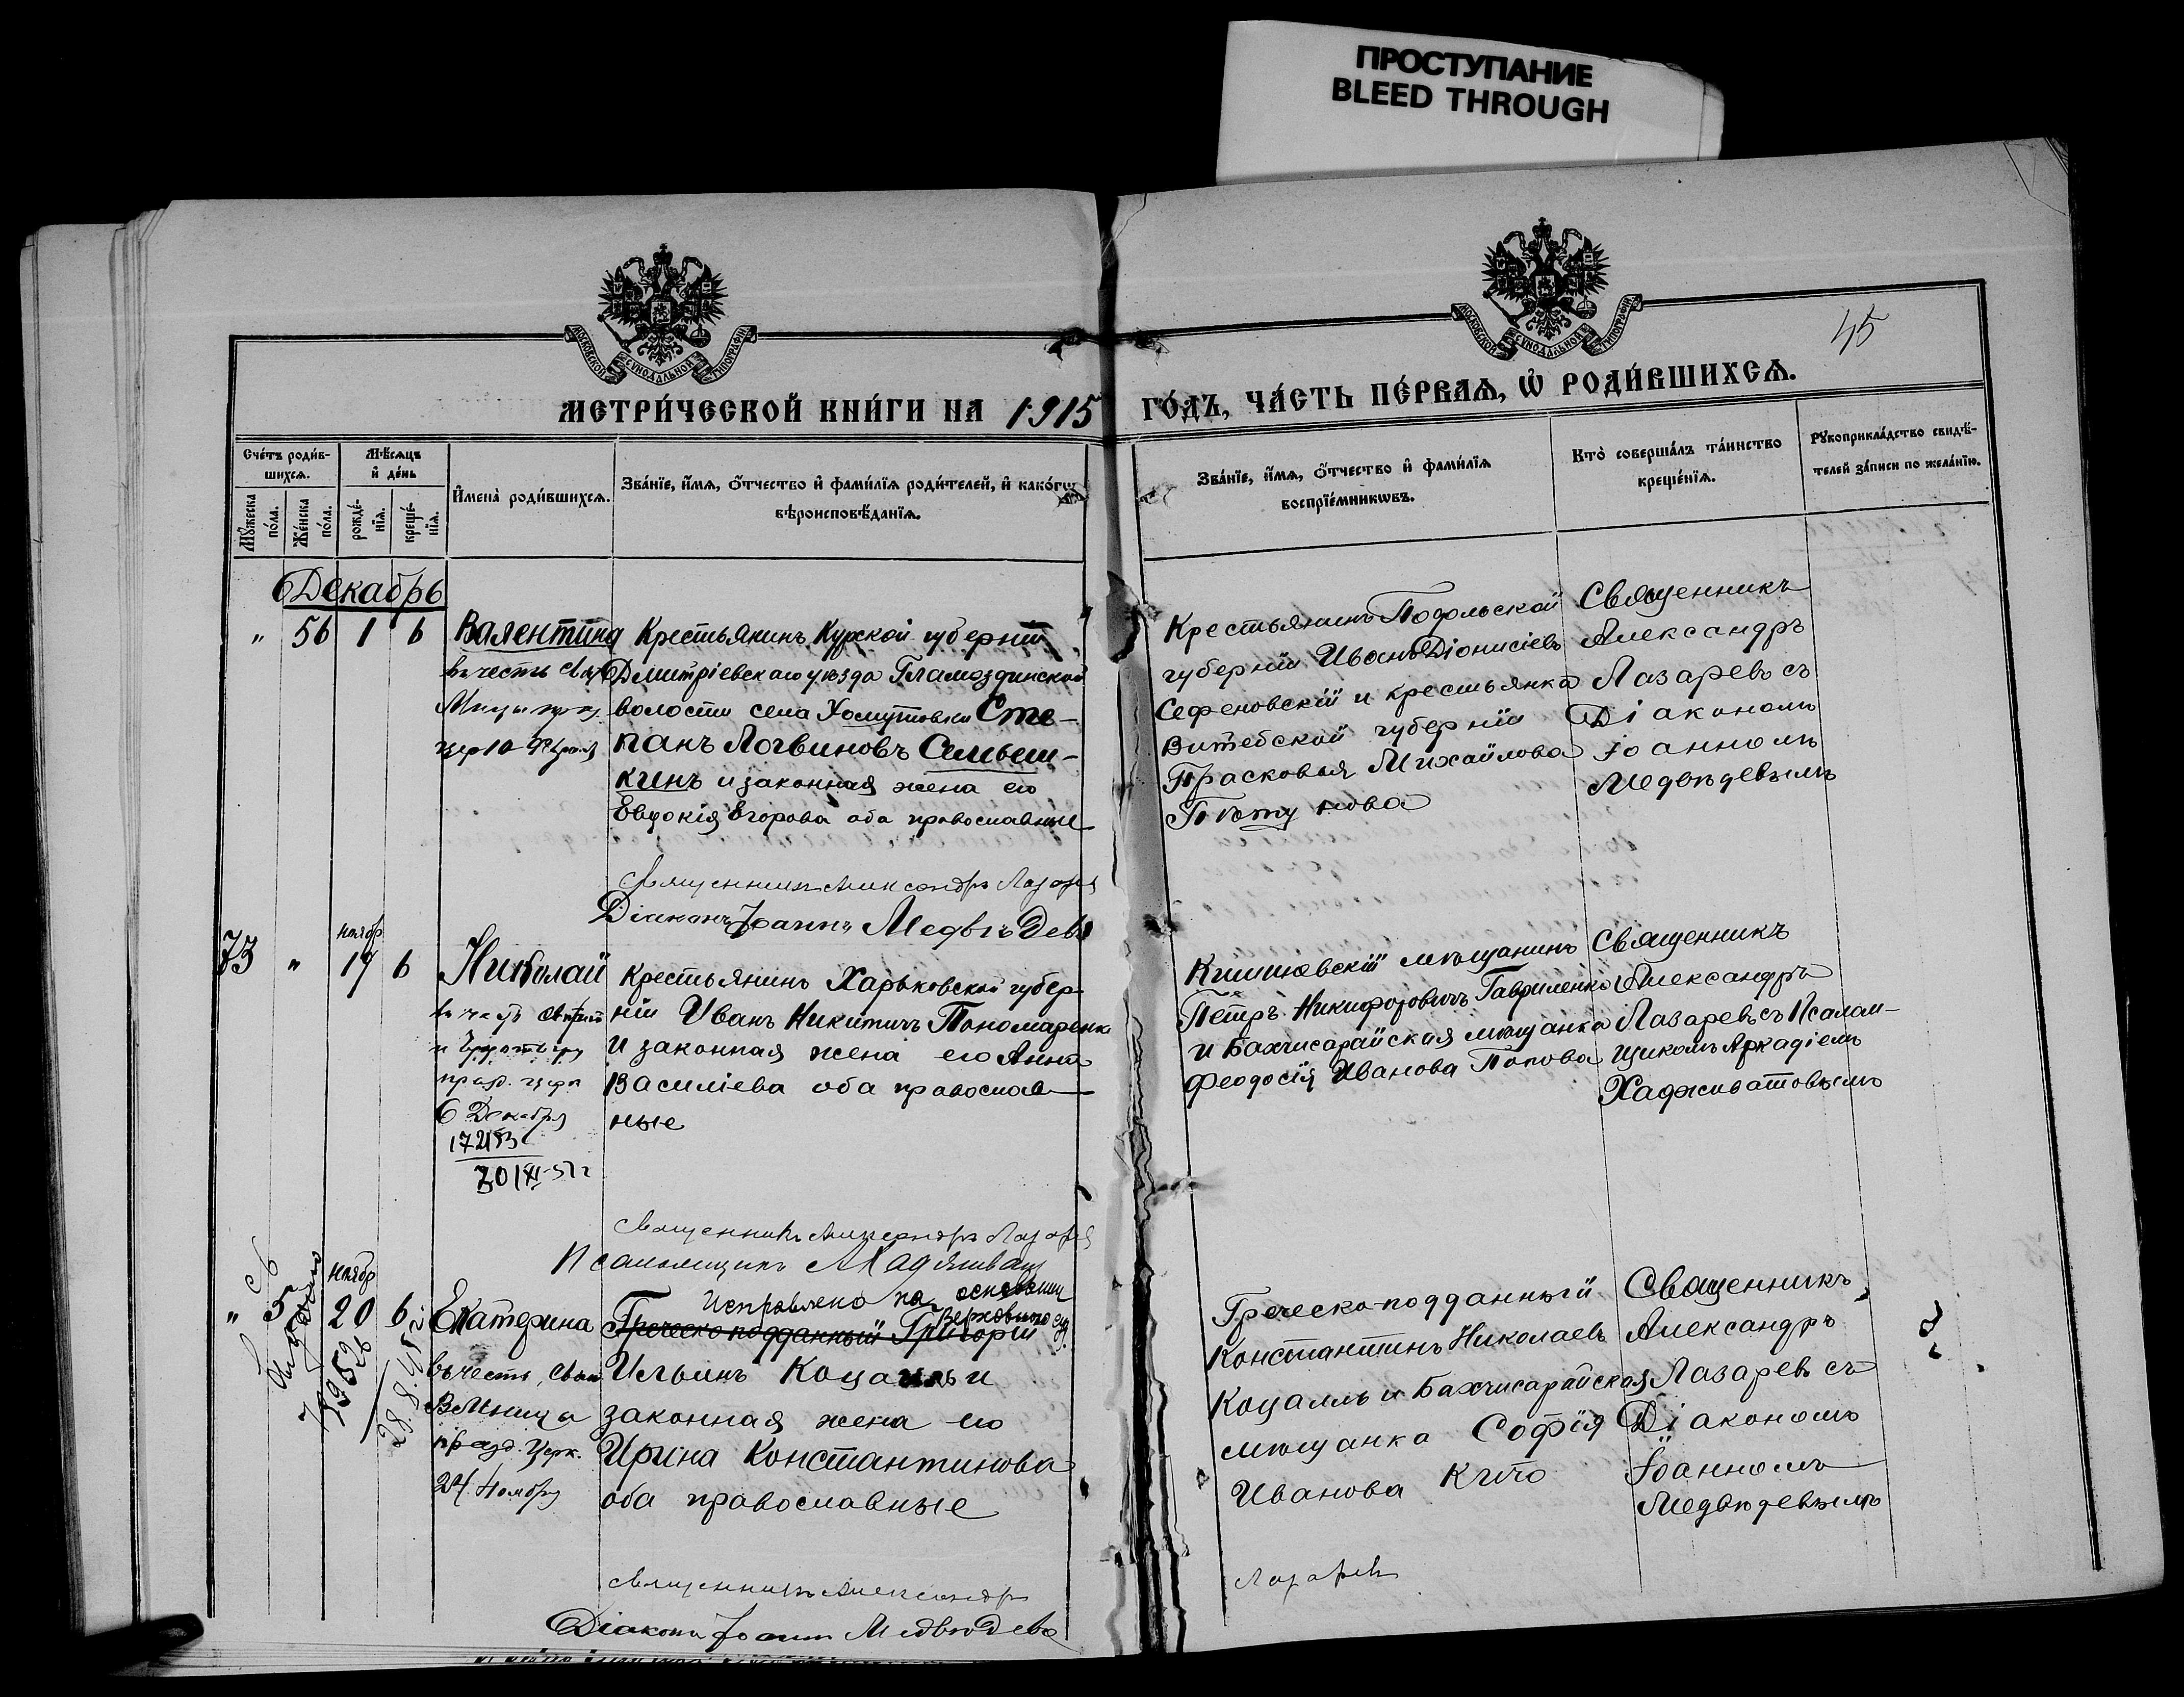 ПРОСТУПАНИЕ
BLEED THROUGH
МОСКОВСКОЙ СѴНОДАЛЬНОЙ ТИПОГРАФІИ
МОСКОВСКОЙ СѴНОДАЛЬНОЙ ТИПОГРАФІИ
45
МЕТРИ́ЧЕСКОЙ КНИ́ГИ НА 1915 ГО́ДЪ, ЧА́СТЬ ПЕ́РВАѦ, Ѡ҆ РОДИ́ВШИХСѦ.
Сче́тъ роди́в-
шихсѧ.
Мѣ́сѧцъ
и҆ де́нь
Мꙋ́жеска
по́ла.
Же́нска
по́ла.
рожде́-
нїѧ.
креще́-
нїѧ.
И҆мена̀ роди́вшихсѧ.
Зва́нїе, и҆́мѧ, ѻ҆́тчество и҆ фамѝлїѧ роди́телей, и҆ како́гѡ
вѣроисповѣ́данїѧ.
Зва́нїе, и҆́мѧ, ѻ҆́тчество и҆ фамѝлїѧ
воспрїе́мникѡвъ.
Кто̀ соверша́лъ та́инство
креще́нїѧ.
Рꙋкоприкла́дство свидѣ́-
телей за́писи по жела́нїю.
Декабрь
" 56 1 6
Валентина
въ честь
Крестьянинъ Курской губерніи
Дмитріевскаго уѣзда Гламаздинской
волости села Хомутовки Сте-
панъ Логвиновъ Семьеш-
кинъ и законная жена его
Евдокія Егорова оба православные
Крестьянинъ Подольской
губерніи Иванъ Діонисіевъ
Сефеновскій и крестьянка
Витебской губерніи
Прасковья Михайлова
Священникъ
Александръ
Лазаревъ съ
Діакономъ
Іоанномъ
Медвѣдевымъ
Священникъ Александръ Лазаревъ
Діаконъ Іоаннъ Медвѣдевъ
73 " ноябр 19 6
Николай
6 Декабря
17283
30/XI-51г
Крестьянинъ Харьковской губер-
ніи Иванъ Никитичъ Пономаренко
и законная жена его Анна
Василіева оба православ-
ные
Кишиневскій мѣщанинъ
Петръ Никифоровичъ Гавриленко
и Бахчисарайская мѣщанка
Феодосія Иванова Попова
Священникъ
Александръ
Лазаревъ съ Псалом-
щикомъ Аркадіемъ
Хадживатовымъ
Священникъ Александръ Лазаревъ
Псаломщикъ
" 5 ноябр 20 6
Екатерина
въ честь
празд. Церк.
24 Ноября
Исправлено на основании
Верховного суд.
Греческо-подданный Григорій
Ильинъ и
законная жена его
Ирина Константинова
оба православные
Греческо-подданный
Константинъ Николаевъ
и Бахчисарайская
мѣщанка Софія
Иванова
Священникъ
Александръ
Лазаревъ съ
Діакономъ
Іоанномъ
Медвѣдевымъ
Священникъ Александръ Лазаревъ
Діаконъ Іоаннъ Медвѣдевъ